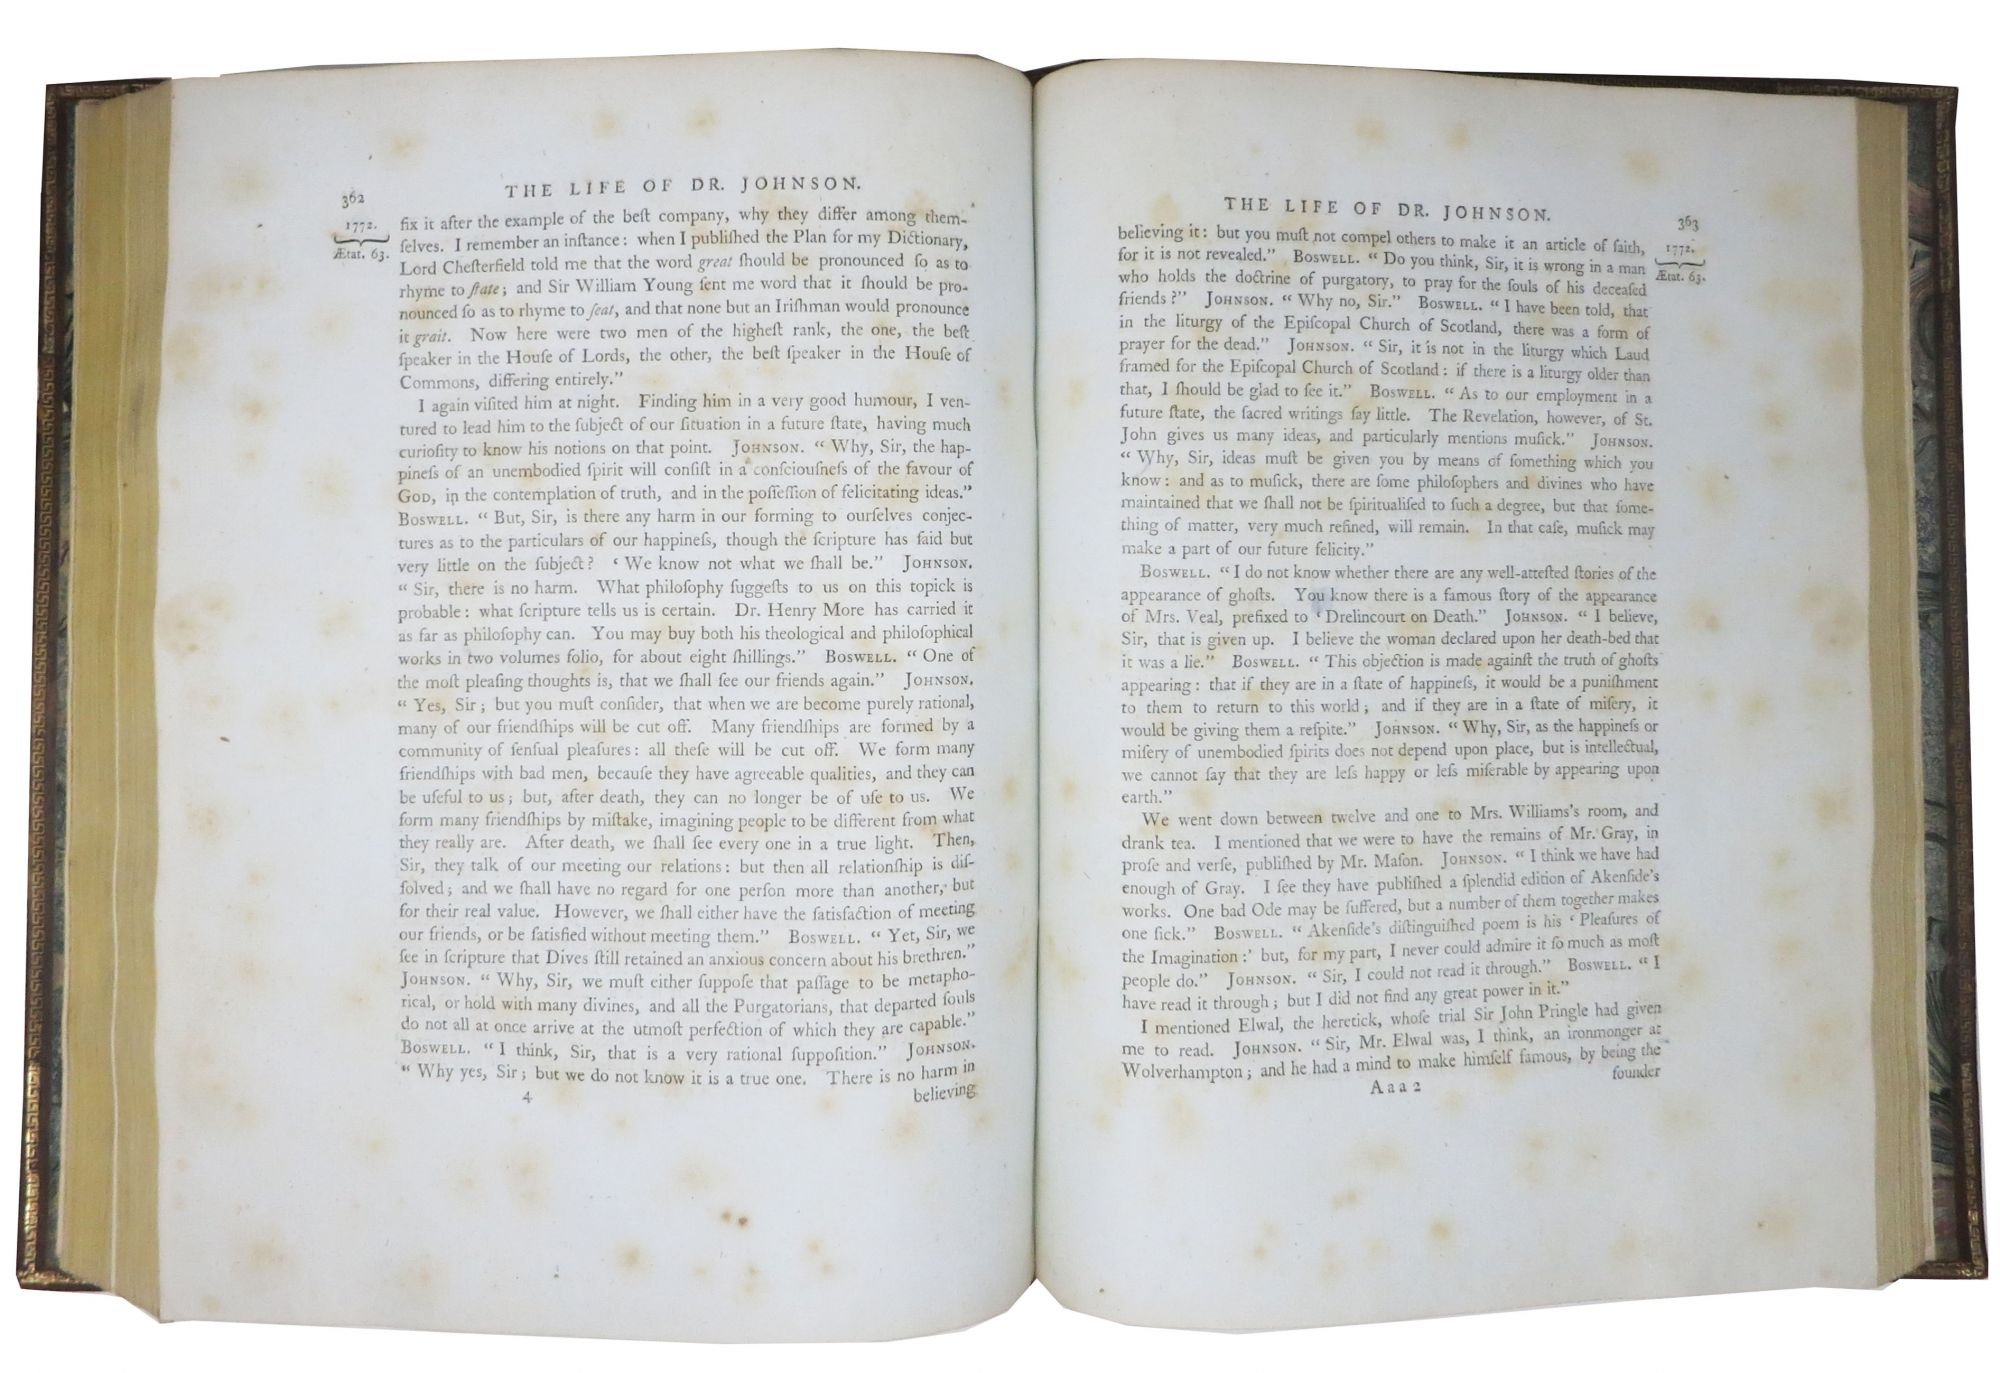 362
THE LIFE OF DR. JOHNSON.
1772.
Ætat. 63.
fix it after the example of the beſt company, why they differ among them-
ſelves. I remember an inſtance: when I publiſhed the Plan for my Dictionary,
Lord Cheſterfield told me that the word great ſhould be pronounced ſo as to
rhyme to ſtate; and Sir William Young ſent me word that it ſhould be pro-
nounced ſo as to rhyme to ſeat, and that none but an Iriſhman would pronounce
it grait. Now here were two men of the higheſt rank, the one, the beſt
ſpeaker in the Houſe of Lords, the other, the beſt ſpeaker in the Houſe of
Commons, differing entirely.”
I again viſited him at night. Finding him in a very good humour, I ven-
tured to lead him to the ſubject of our ſituation in a future ſtate, having much
curioſity to know his notions on that point. JOHNSON. “Why, Sir, the hap-
pineſs of an unembodied ſpirit will conſiſt in a conſciouſneſs of the favour of
GOD, in the contemplation of truth, and in the poſſeſſion of felicitating ideas.”
BOSWELL. “But, Sir, is there any harm in our forming to ourſelves conjec-
tures as to the particulars of our happineſs, though the ſcripture has ſaid but
very little on the ſubject? ‘We know not what we ſhall be.” JOHNSON.
“Sir, there is no harm. What philoſophy ſuggeſts to us on this topick is
probable: what ſcripture tells us is certain. Dr. Henry More has carried it
as far as philoſophy can. You may buy both his theological and philoſophical
works in two volumes folio, for about eight ſhillings.” BOSWELL. “One of
the moſt pleaſing thoughts is, that we ſhall ſee our friends again.” JOHNSON.
“Yes, Sir; but you muſt conſider, that when we are become purely rational,
many of our friendſhips will be cut off. Many friendſhips are formed by a
community of ſenſual pleaſures: all theſe will be cut off. We form many
friendſhips with bad men, becauſe they have agreeable qualities, and they can
be uſeful to us; but, after death, they can no longer be of uſe to us. We
form many friendſhips by miſtake, imagining people to be different from what
they really are. After death, we ſhall ſee every one in a true light. Then,
Sir, they talk of our meeting our relations: but then all relationſhip is diſ-
ſolved; and we ſhall have no regard for one perſon more than another, but
for their real value. However, we ſhall either have the ſatisfaction of meeting
our friends, or be ſatisfied without meeting them.” BOSWELL. “Yet, Sir, we
ſee in ſcripture that Dives ſtill retained an anxious concern about his brethren.”
JOHNSON. “Why, Sir, we muſt either ſuppoſe that paſſage to be metapho-
rical, or hold with many divines, and all the Purgatorians, that departed ſouls
do not all at once arrive at the utmoſt perfection of which they are capable.”
BOSWELL. “I think, Sir, that is a very rational ſuppoſition.” JOHNSON.
“Why yes, Sir; but we do not know it is a true one. There is no harm in
4
believing
THE LIFE OF DR. JOHNSON.
363
1772.
Ætat. 63.
believing it: but you muſt not compel others to make it an article of faith,
for it is not revealed.” BOSWELL. “Do you think, Sir, it is wrong in a man
who holds the doctrine of purgatory, to pray for the ſouls of his deceaſed
friends?” JOHNSON. “Why no, Sir.” BOSWELL. “I have been told, that
in the liturgy of the Epiſcopal Church of Scotland, there was a form of
prayer for the dead.” JOHNSON. “Sir, it is not in the liturgy which Laud
framed for the Epiſcopal Church of Scotland: if there is a liturgy older than
that, I ſhould be glad to ſee it.” BOSWELL. “As to our employment in a
future ſtate, the ſacred writings ſay little. The Revelation, however, of St.
John gives us many ideas, and particularly mentions muſick.” JOHNSON.
“Why, Sir, ideas muſt be given you by means of ſomething which you
know: and as to muſick, there are ſome philoſophers and divines who have
maintained that we ſhall not be ſpiritualiſed to ſuch a degree, but that ſome-
thing of matter, very much refined, will remain. In that caſe, muſick may
make a part of our future felicity.”
BOSWELL. “I do not know whether there are any well-atteſted ſtories of the
appearance of ghoſts. You know there is a famous ſtory of the appearance
of Mrs. Veal, prefixed to ‘Drelincourt on Death.” JOHNSON. “I believe,
Sir, that is given up. I believe the woman declared upon her death-bed that
it was a lie.” BOSWELL. “This objection is made againſt the truth of ghoſts
appearing: that if they are in a ſtate of happineſs, it would be a puniſhment
to them to return to this world; and if they are in a ſtate of miſery, it
would be giving them a reſpite.” JOHNSON. “Why, Sir, as the happineſs or
miſery of unembodied ſpirits does not depend upon place, but is intellectual,
we cannot ſay that they are leſs happy or leſs miſerable by appearing upon
earth.”
We went down between twelve and one to Mrs. Williams's room, and
drank tea. I mentioned that we were to have the remains of Mr. Gray, in
proſe and verſe, publiſhed by Mr. Maſon. JOHNSON. “I think we have had
enough of Gray. I ſee they have publiſhed a ſplendid edition of Akenſide's
works. One bad Ode may be ſuffered, but a number of them together makes
one ſick.” BOSWELL. “Akenſide's diſtinguiſhed poem is his ‘Pleaſures of
the Imagination:’ but, for my part, I never could admire it ſo much as moſt
people do.” JOHNSON. “Sir, I could not read it through.” BOSWELL. “I
have read it through; but I did not find any great power in it.”
I mentioned Elwal, the heretick, whoſe trial Sir John Pringle had given
me to read. JOHNSON. “Sir, Mr. Elwal was, I think, an ironmonger at
Wolverhampton; and he had a mind to make himſelf famous, by being the
founder
Aaa 2